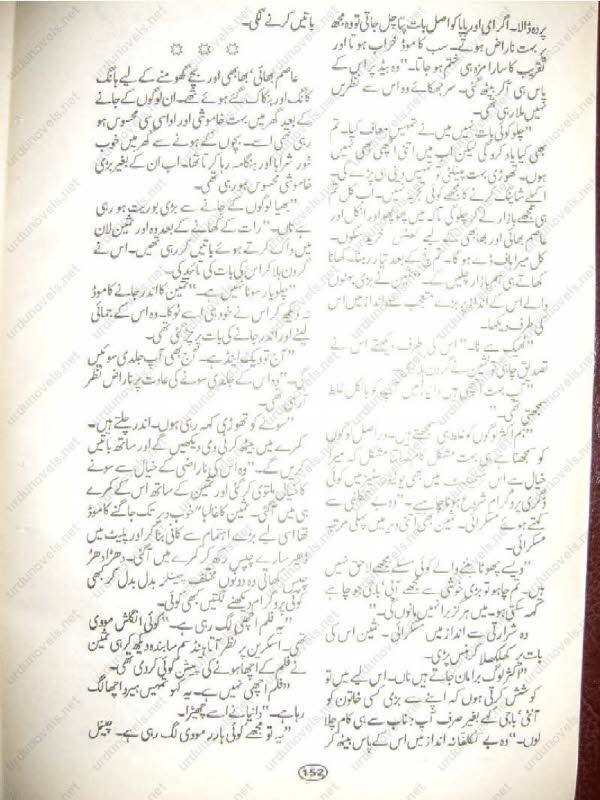 پردہ ڈالا۔ اگر امی اور پاپا کو اصل بات پتا چل جاتی تو وہ مجھ
پر بہت ناراض ہوتے۔ سب کا موڈ خراب ہوتا اور
تقریب کا سارا مزہ ہی ختم ہو جاتا۔" وہ بیڈ پر اس کے
پاس ہی آ کر بیٹھ گئی۔ سر جھکائے وہ اس سے نظریں
نہیں ملا رہی تھی۔
"چلو کوئی بات نہیں میں نے تمہیں معاف کیا۔ تم
بھی کیا یاد کرو گی لیکن اب میں اتنی اچھی بھی نہیں
ہوں۔ تھوڑی بہت پینلٹی تو تمہیں دینی ہی پڑے گی۔
اکیلے شاپنگ کرنے کا مجھے کوئی تجربہ نہیں۔ اب کل تم
ہی مجھے بازار لے کر چلو گی تاکہ میں پھوپھو اور انکل اور
عاصم بھائی اور بھابھی کے لیے گفٹس خرید سکوں۔
کل میرا ہاف ڈے ہو گا۔ تم بچ کے بعد تیار رہنا۔ کھانا
کھاتے ہی ہم بازار چلیں گے۔" ثمین نے بڑی بہنوں
والے اس کے انداز پر بڑے تعجب سے انداز میں اس
کی طرف دیکھا۔
"ٹھیک ہے نا۔" اس کی طرف دیکھتے اس نے
تصدیق چاہی تو ثمین نے گردن ہلا دی۔
"آپ بہت اچھی ہیں دانیا! میں آپ کو بالکل غلط
سمجھتی تھی۔"
"ہم اکثر لوگوں کو غلط ہی سمجھتے ہیں۔ دراصل لوگوں
کو سمجھنا ہے ہی بہت مشکل کام۔ اتنا مشکل کہ میرے
خیال سے اس میں بھی یونیورسٹیز میں کوئی
ڈگری پروگرام شروع ہونا چاہیے۔" وہ بے تکلفی سے
کہتے ہوئے مسکرائی۔ ثمین بھی اتنی دیر میں پہلی مرتبہ
مسکرائی۔
"ویسے چھوٹا بننے والے کوئی مسئلے مجھے لاحق نہیں
ہیں۔ تم چاہو تو بڑی خوشی سے مجھے آپی' باجی جو چاہے
کہہ سکتی ہو۔ میں ہرگز برا نہیں مانوں گی۔"
وہ شرارتی سے انداز میں مسکرائی۔ ثمین اس کی
بات پر کھلکھلا کر ہنس پڑی۔
"اکثر لوگ برا مان جاتے ہیں ناں۔ اسی لیے میں تو
کوشش کرتی ہوں کہ اپنے سے بڑی کسی خاتون کو
آنٹی' باجی کہے بغیر صرف آپ جناب سے ہی کام چلا
لوں۔" وہ بے تکلفانہ انداز میں اس کے پاس بیٹھ کر
باتیں کرنے لگی۔
☼ ☼ ☼
عاصم بھائی' بھابھی اور بچے گھومنے کے لیے ہانگ
کانگ اور بنکاک گئے ہوئے تھے۔ ان لوگوں کے جانے
کے بعد گھر میں بہت خاموشی اور اداسی سی محسوس ہو
رہی تھی اسے۔ بچوں کے ہونے سے گھر میں خوب
شور شرابا اور ہنگامہ رہا کرتا تھا۔ اب ان کے بغیر بڑی
خاموشی محسوس ہو رہی تھی۔
"بھیا لوگوں کے جانے سے بڑی بوریت ہو رہی
ہے ناں۔" رات کے کھانے کے بعد وہ اور ثمین لان
میں واک کرتے ہوئے باتیں کر رہی تھیں۔ اس نے
گردن ہلا کر اس کی بات کی تائید کی۔
"چلو یار سونا نہیں ہے۔" ثمین کا اندر جانے کا موڈ
نہ دیکھ کر اس نے خود ہی اسے ٹوکا۔ وہ اس کے جمائی
لینے اور اندر جانے کی بات پر چڑ گئی تھی۔
"آج تو ویک اینڈ ہے۔ آج بھی آپ جلدی سوئیں
گی۔" وہ اس کے جلدی سونے کی عادت پر ناراض نظر
آ رہی تھی۔
"سونے کو تھوڑی کہہ رہی ہوں۔ اندر چلتے ہیں۔
کمرے میں بیٹھ کر ٹی وی دیکھیں گے اور ساتھ باتیں
کریں گے۔" وہ اس کی ناراضی کے خیال سے سونے
کا خیال ملتوی کر گئی اور ثمین کے ساتھ اس کے کمرے
ہی میں آ گئی۔ ثمین کا غالبا" خوب دیر تک جاگنے کا موڈ
تھا اسی لیے بڑے اہتمام سے کافی بنا کر اور پلیٹ میں
ڈھیر سارے چپس رکھ کر کمرے میں آ گئی۔ دھڑا دھڑ
چپس کھاتی وہ دونوں مختلف چینلز بدل بدل کر کبھی
کوئی پروگرام دیکھنے لگتیں کبھی کوئی۔
"یہ فلم اچھی لگ رہی ہے۔" کوئی انگلش مووی
تھی۔ اسکرین پر نظر آتا ہینڈسم سا بندہ دیکھ کر ہی ثمین
نے فلم کے اچھا ہونے کی پیشن گوئی کر دی تھی۔
"فلم اچھی نہیں ہے۔ یہ کہو تمہیں ہیرو اچھا لگ
رہا ہے۔" دانیا نے اسے چھیڑا۔
"یہ تو مجھے کوئی ہارر مووی لگ رہی ہے۔ چینل
152
urdunovels.net